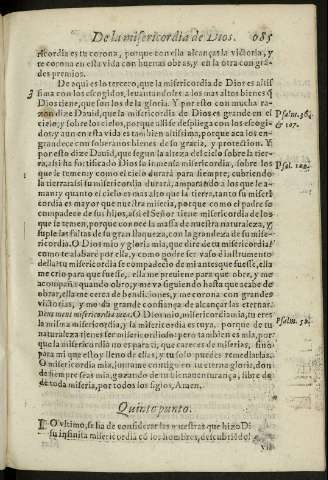 De la misericordia de Dios. 685
ricordia es tu corona, porque con ella alcanças la victoria, y
te corona en esta vida con buenas obras, y en la otra con gran
des premios.
3 De aqui es lo tercero, que la misericordia de Dios es altis
sima con los escogidos, leuantandolos a los mas altos bienes q̃
Dios tiene, que son los de la gloria. Y por esto con mucha ra-
zon dize Dauid, que la misericordia de Dios es grande en el
cielo, y sobre los cielos, porque alli se despliega con los escogi-
dos, y aun en esta vida es tambien altissima, porque aca los en-
grandece con soberanos bienes de su gracia, y proteccion. Y
por esto dize Dauid, que segun la alteza del cielo sobre la tier-
ra, assi ha fortificado Dios su inmensa misericordia, sobre los
que le temen: y como el cielo durarà para siempre, cubriendo
la tierra: assi su misericordia durarà, amparando a los que le a-
man: y quanto el cielo es mas alto que la tierra, tanto su miseri
cordia es mayor que nuestra miseria, porque como el padre se
compadece de sus hijos, assi el Señor tiene misericordia de los
que le temen, porque conoce la massa de nuestra naturaleza, y
suple las faltas de su gran flaqueza, con la grandeza de su mise-
ricordia. O Dios mio y gloria mia, que dire de tu misericordia?
como te alabarè por ella, y como podre ser vaso è instrumento
della? tu misericordia se compadecio de mi antes que fuesse, ella
me crio para que fuesse, ella me preuiene para que obre, y me
acompaña quando obro, y me va siguiendo hasta que acabe de
obrar, ella me cerca de bendiciones, y me corona con grandes
victorias, y me da grande confiança de alcançar las eternas.
Deus meus misericordia mea. O Dios mio, misericordia mia, tu eres
la misma misericordia, y la misericordia es tuya, porque de tu
naturaleza tienes ser misericordioso: pero tambien es mia, por-
que la misericordia no es para ti, que careces de miserias, sino
para mi que estoy lleno de ellas, y tu solo puedes remediarlas.
O misericordia mia, juntame contigo en tu eterna gloria, don
de siempre seas mia, gozando de tu bienauenturança, libre de
de toda miseria, por todos los siglos, Amen.
Psalm. 56.
& 107.
Psal. 102.
Psalm. 58.
Quinto punto.
LO vltimo, se ha de considerar las muestras que hizo Di
su infinita misericordia cõ los hombres, descubriẽdo